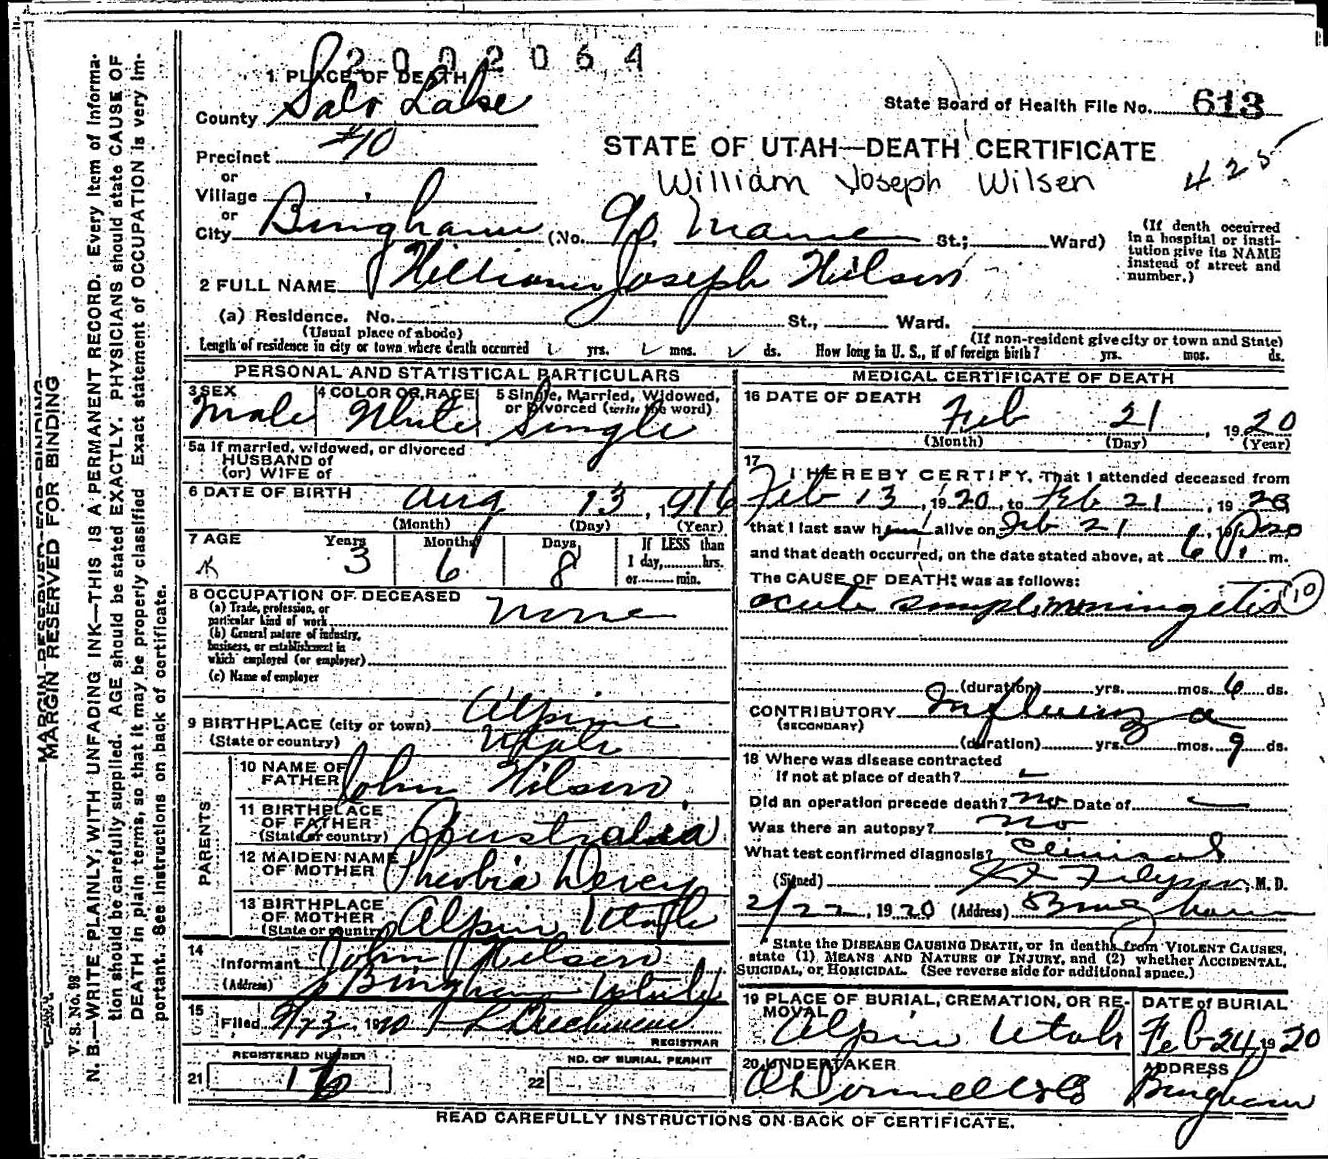 2002064
1 PLACE OF DEATH
County Salt Lake
State Board of Health File No. 613
Precinct #10
STATE OF UTAH—DEATH CERTIFICATE
or
Village
William Joseph Wilsen
425
or
City Bingham (No. 90 Maine St.; Ward)
(If death occurred in a hospital or institution give its NAME instead of street and number.)
2 FULL NAME William Joseph Wilson
(a) Residence. No. St., Ward.
(Usual place of abode)
(If non-resident give city or town and State)
Length of residence in city or town where death occurred yrs. mos. ds. How long in U. S., if of foreign birth? yrs. mos. ds.
PERSONAL AND STATISTICAL PARTICULARS
3 SEX Male
4 COLOR OR RACE White
5 Single, Married, Widowed, or Divorced (write the word) Single
5a If married, widowed, or divorced
HUSBAND of
(or) WIFE of
6 DATE OF BIRTH Aug 13, 1916
(Month) (Day) (Year)
7 AGE Years Months Days If LESS than
3 6 8 1 day, hrs.
or min.
8 OCCUPATION OF DECEASED
(a) Trade, profession, or
particular kind of work none
(b) General nature of industry,
business, or establishment in
which employed (or employer)
(c) Name of employer
9 BIRTHPLACE (city or town) Alpine
(State or country) Utah
PARENTS
10 NAME OF FATHER John Wilson
11 BIRTHPLACE OF FATHER (State or country) Australia
12 MAIDEN NAME OF MOTHER
13 BIRTHPLACE OF MOTHER (State or country) Alpin Utah
14
Informant John Wilson
(Address) Bingham Utah
15
Filed
REGISTRAR
REGISTERED NUMBER
21
NO. OF BURIAL PERMIT
22
MEDICAL CERTIFICATE OF DEATH
16 DATE OF DEATH
Feb 21, 1920
(Month) (Day) (Year)
17
I HEREBY CERTIFY, That I attended deceased from
Feb 13, 1920, to Feb 21, 1920
that I last saw him alive on Feb 21, 1920
and that death occurred, on the date stated above, at 6 P. m.
The CAUSE OF DEATH* was as follows:
acute simple meningetis 10
(duration) yrs. mos. 6 ds.
CONTRIBUTORY Influenza
(SECONDARY)
(duration) yrs. mos. 9 ds.
18 Where was disease contracted
If not at place of death?
Did an operation precede death? no Date of
Was there an autopsy? no
What test confirmed diagnosis? clinical
(Signed) M. D.
2/22, 1920 (Address) Bingham
*State the DISEASE CAUSING DEATH, or in deaths from VIOLENT CAUSES,
state (1) MEANS AND NATURE OF INJURY, and (2) whether ACCIDENTAL,
SUICIDAL, or HOMICIDAL. (See reverse side for additional space.)
19 PLACE OF BURIAL, CREMATION, OR REMOVAL
Alpin Utah
DATE of BURIAL
Feb 24 1920
20 UNDERTAKER
O'Donnell & Co
ADDRESS
Bingham
READ CAREFULLY INSTRUCTIONS ON BACK OF CERTIFICATE.
MARGIN RESERVED FOR BINDING
MARGIN RESERVED FOR BINDING
V. S. No. 98
N. B.—WRITE PLAINLY, WITH UNFADING INK—THIS IS A PERMANENT RECORD. Every item of informa-
tion should be carefully supplied. AGE should be stated EXACTLY. PHYSICIANS should state CAUSE OF
DEATH in plain terms, so that it may be properly classified. Exact statement of OCCUPATION is very im-
portant. See instructions on back of certificate.